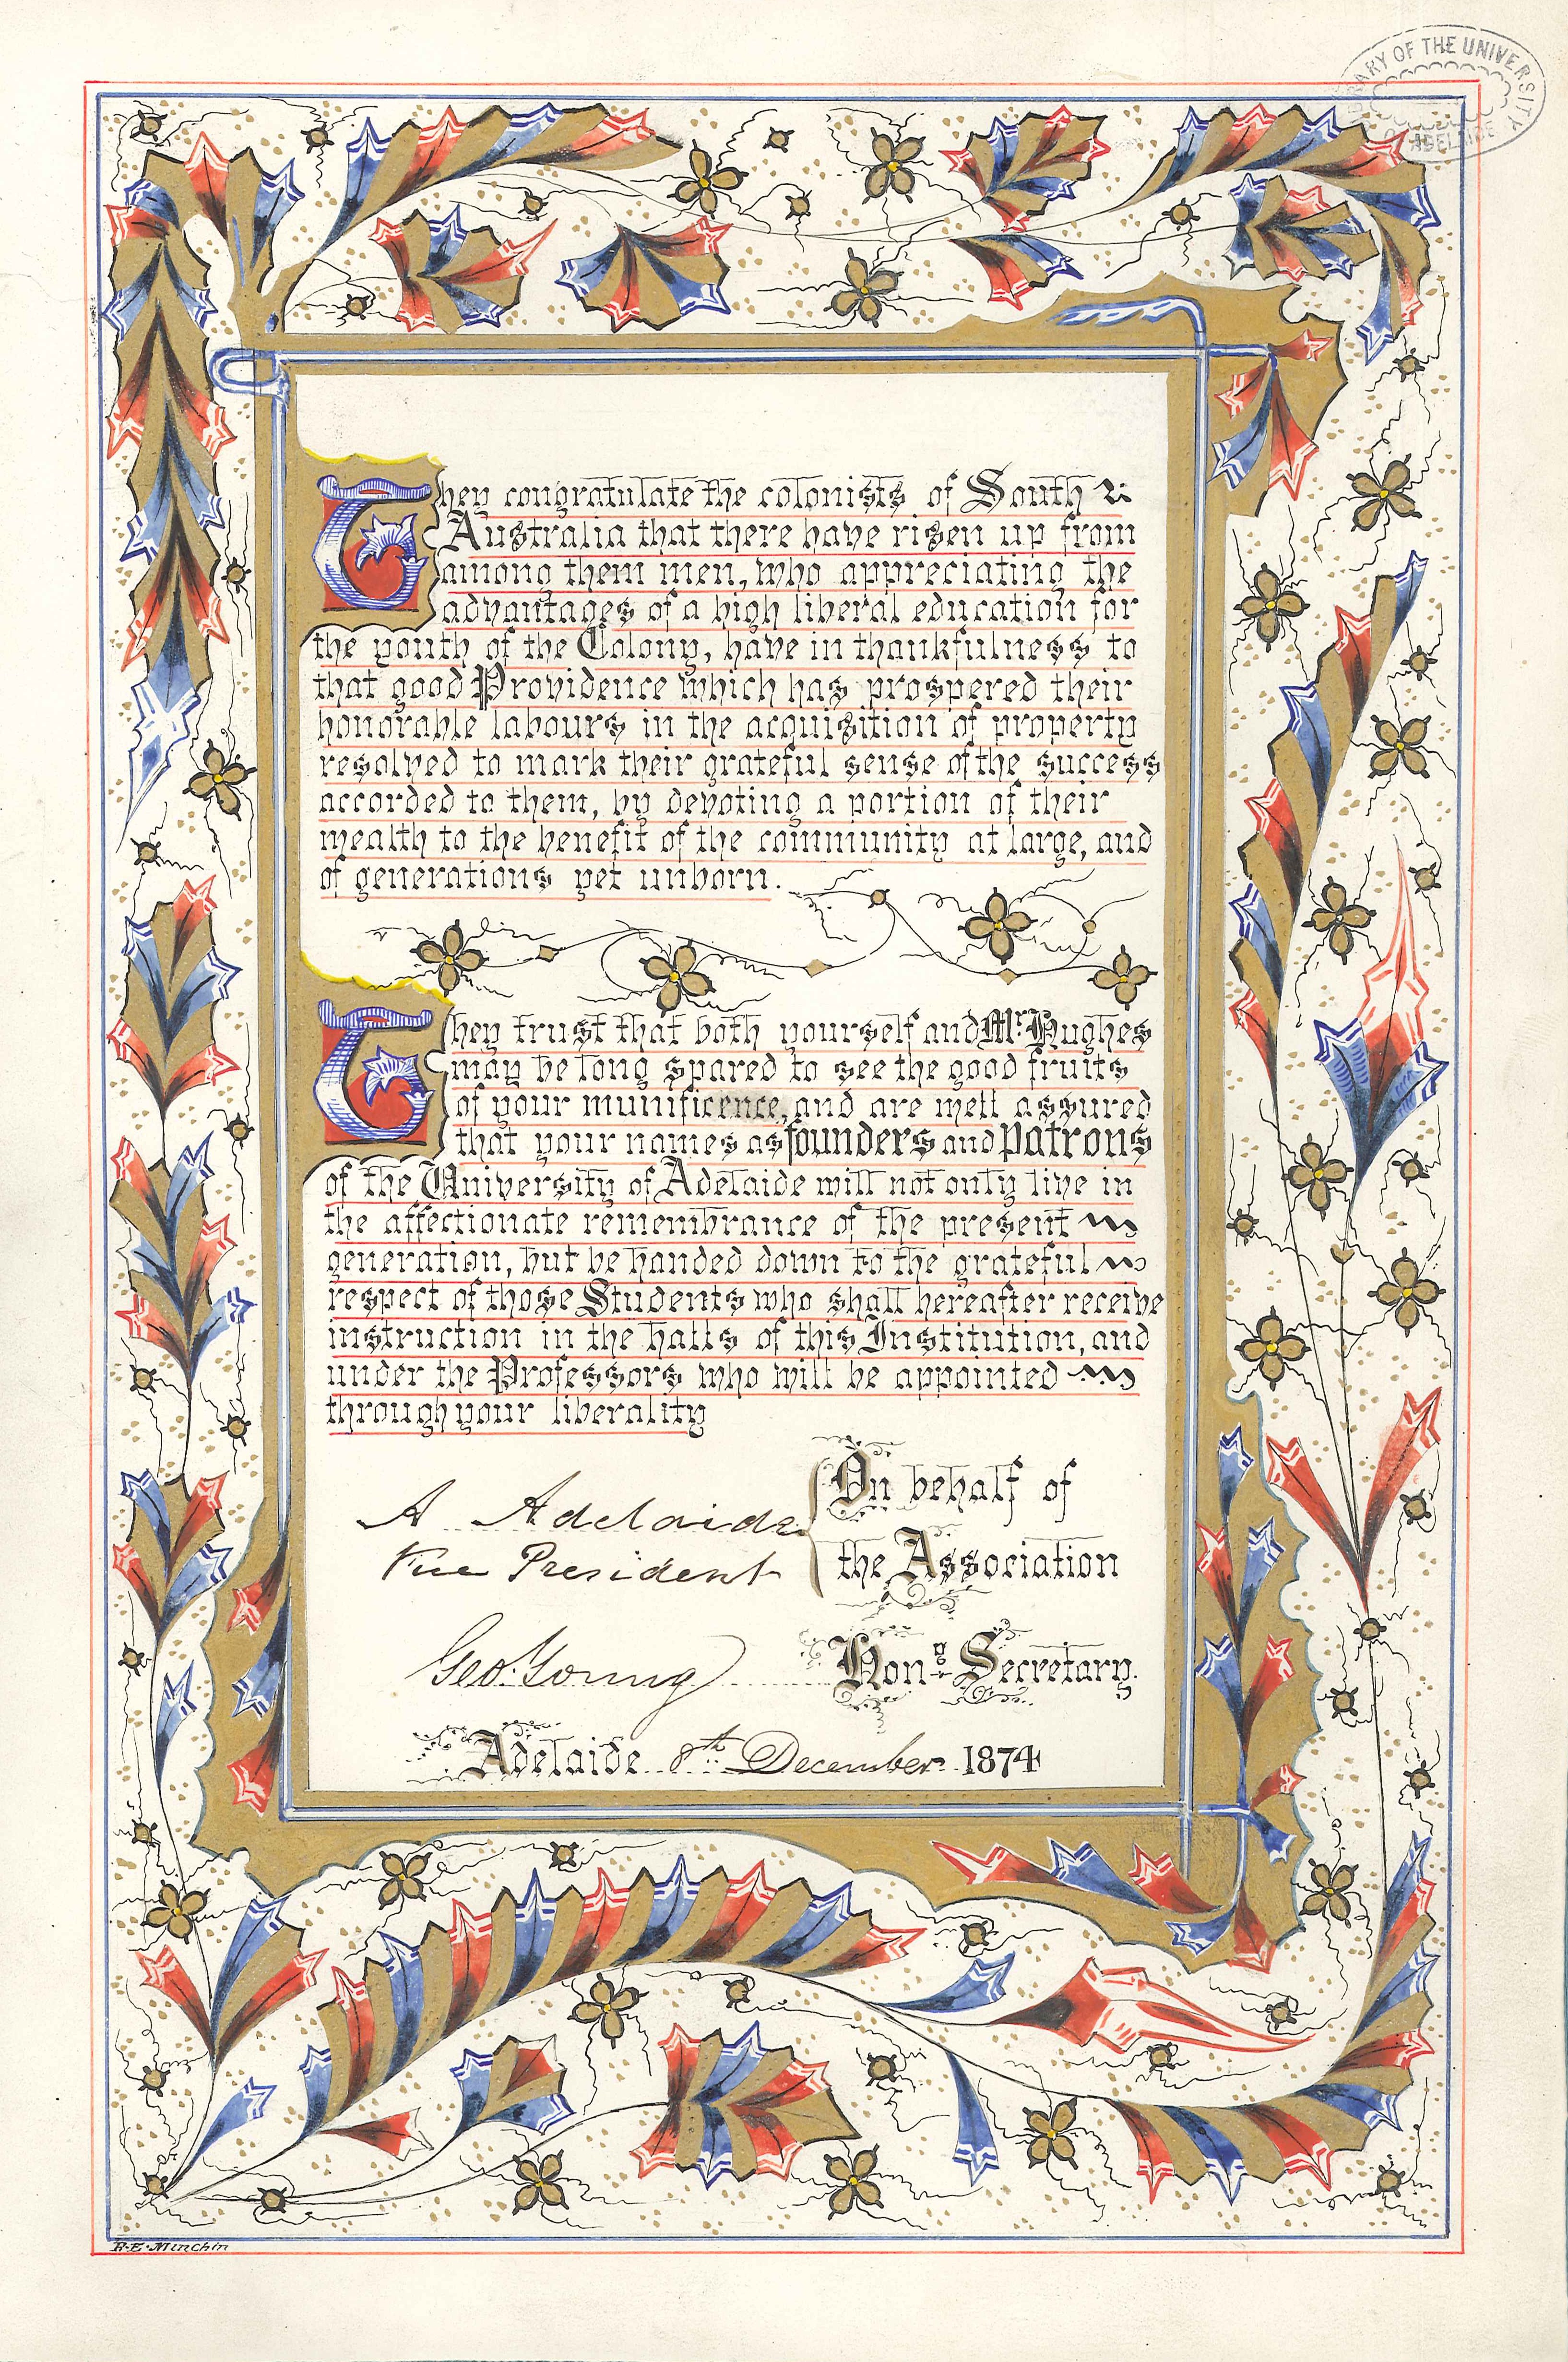 LIBRARY OF THE UNIVERSITY
OF ADELAIDE
They congratulate the colonists of South
Australia that there have risen up from
among them men, who appreciating the
advantages of a high liberal education for
the youth of the Colony, have in thankfulness to
that good Providence which has prospered their
honorable labours in the acquisition of property
resolved to mark their grateful sense of the success
accorded to them, by devoting a portion of their
wealth to the benefit of the community at large, and
of generations yet unborn.
They trust that both yourself and Mr Hughes
may be long spared to see the good fruits
of your munificence, and are well assured
that your names as founders and patrons
of the University of Adelaide will not only live in
the affectionate remembrance of the present
generation, but be handed down to the grateful
respect of those Students who shall hereafter receive
instruction in the halls of this Institution, and
under the Professors who will be appointed
through your liberality
A Adelaide
Vice President
On behalf of
the Association
Geo. Young
Hon. Secretary.
Adelaide 8th December 1874
R.E. Minchin